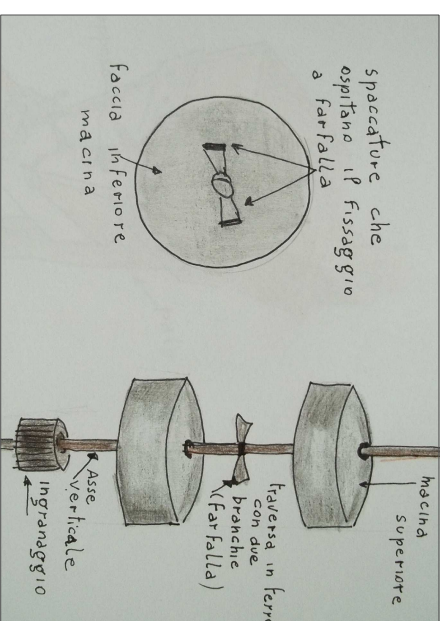 spaccature che
ospitano il fissaggio
a farfalla
faccia inferiore
macina
macina
superiore
traversa in ferro
con due
branchie
(farfalla)
Asse
verticale
ingranaggio